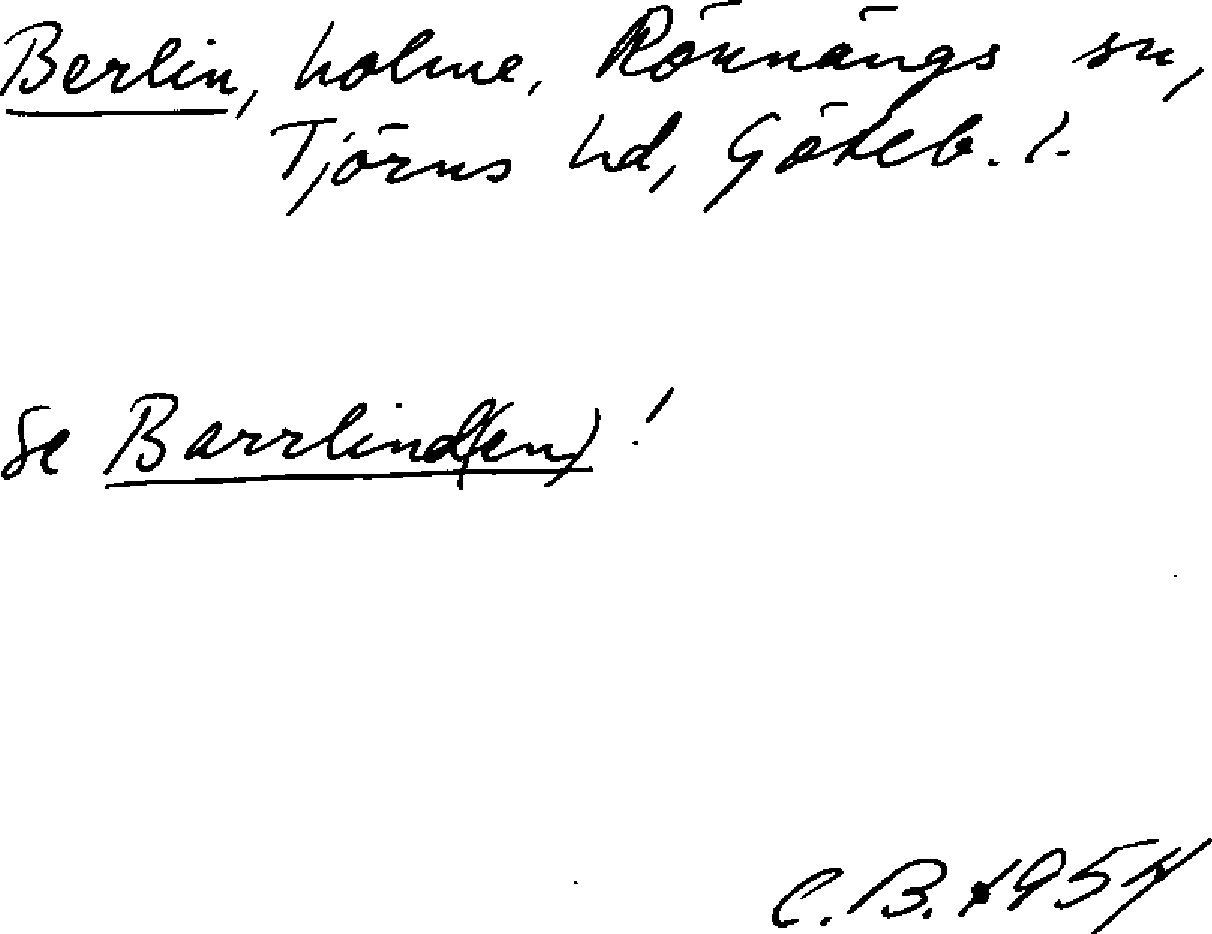 Berlin, holme, Rönnängs sn,
Tjörns hd, Göteb. l.
Se Barrlind(en)!
C.B. 1954